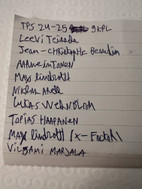 TPS 24-25 9KPL
Leevi Teissala
Jean-Christophe Beaudin
AAtu Jantunen
Max Lindroth
Niklas
Lukas Wernblom
Topias HAAPANEN
Max Lindroth (X-Factor)
VILJAMI MARJALA